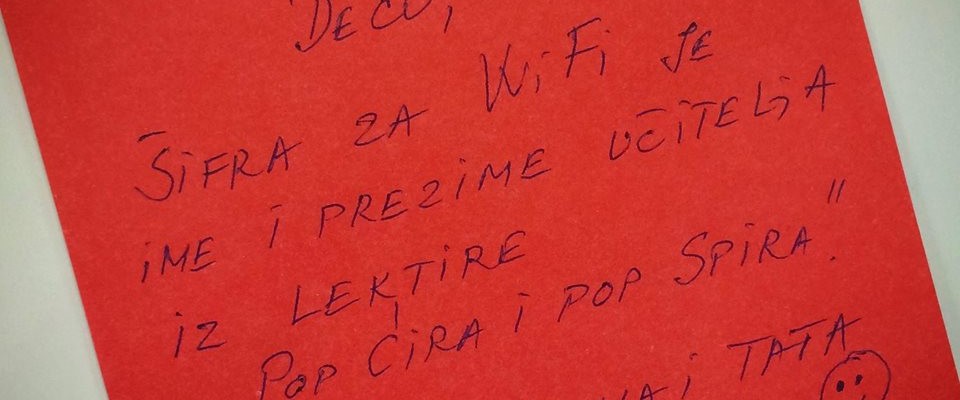 DECO,
ŠIFRA ZA WiFi JE
iME i PREZiME UČiTELjA
iZ LEKTiRE
"POP ĆiRA i POP SPiRA".
i TATA